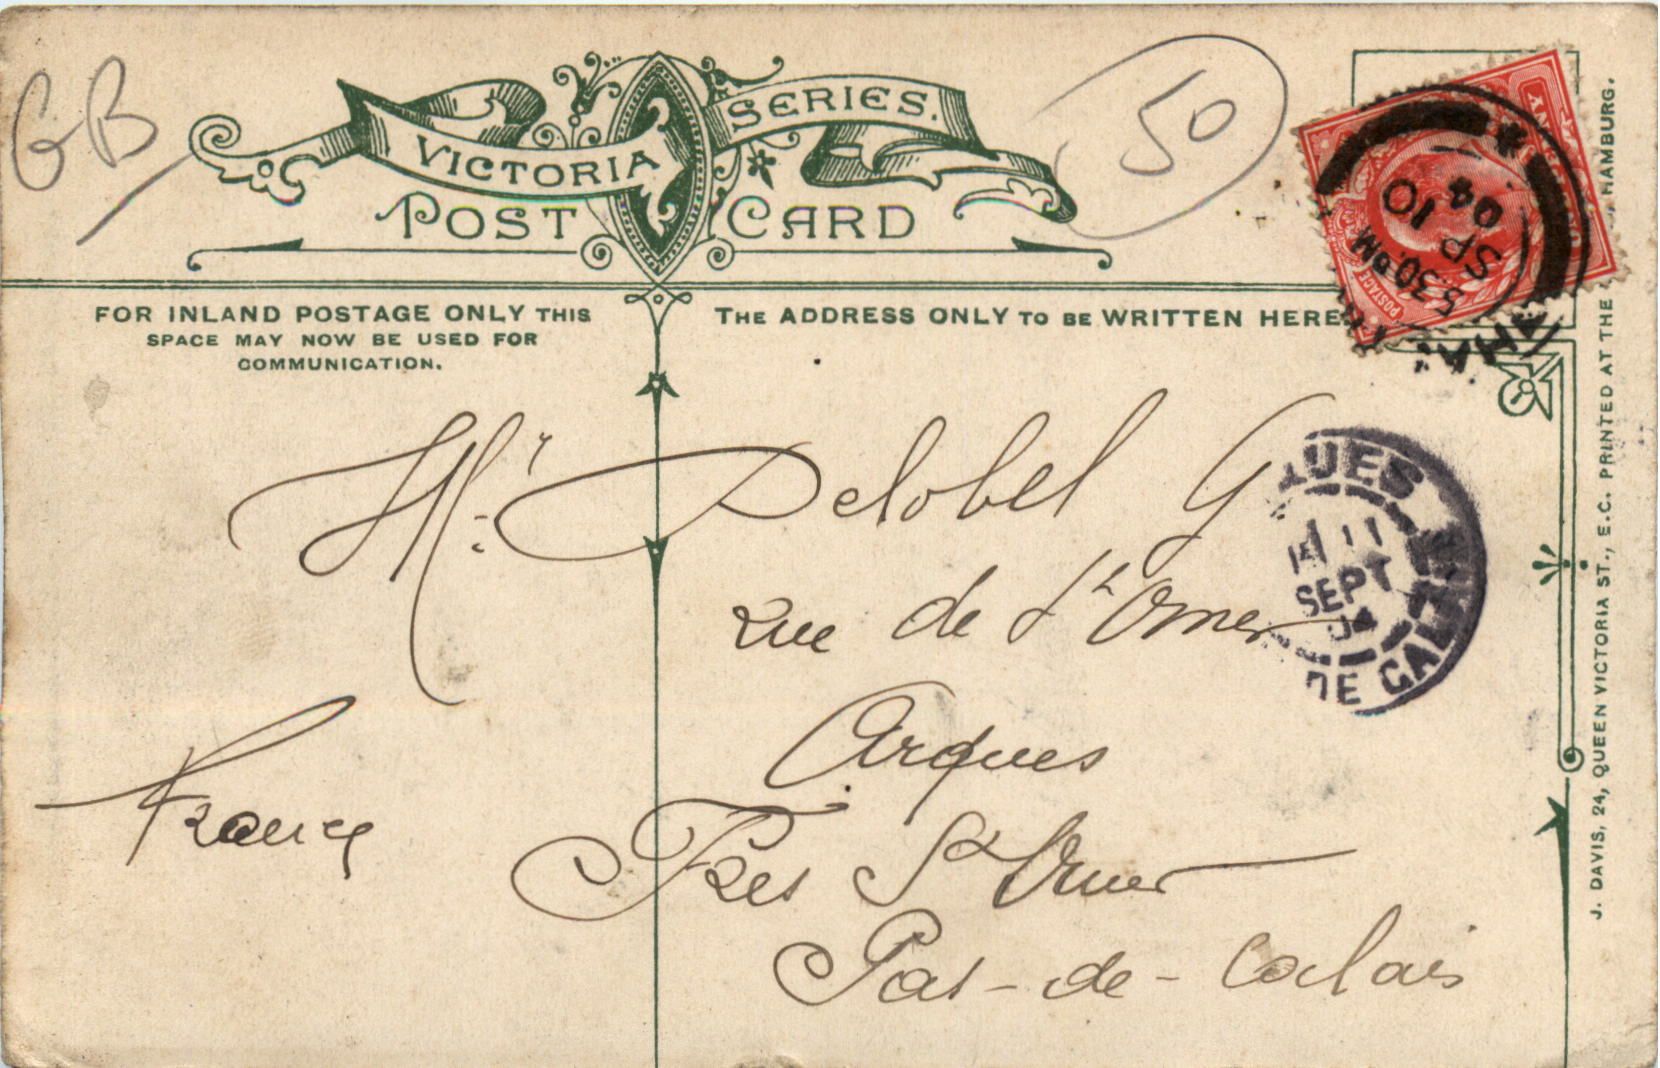 GB
50
VICTORIA SERIES.
POST CARD
FOR INLAND POSTAGE ONLY THIS
SPACE MAY NOW BE USED FOR
COMMUNICATION.
THE ADDRESS ONLY TO BE WRITTEN HERE
5.30 PM
SP 10
04
Mr. Delobel G
Rue de St Omer
Arques
Près St Omer
Pas-de-Calais
France
QUES
11
SEPT
04
DE CALAIS
POSTAGE
J. DAVIS, 24, QUEEN VICTORIA ST., E.C. PRINTED AT THE HAMBURG.